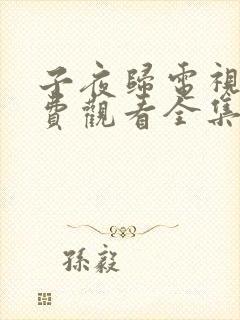 子夜歸電視
費觀看全集
孫毅